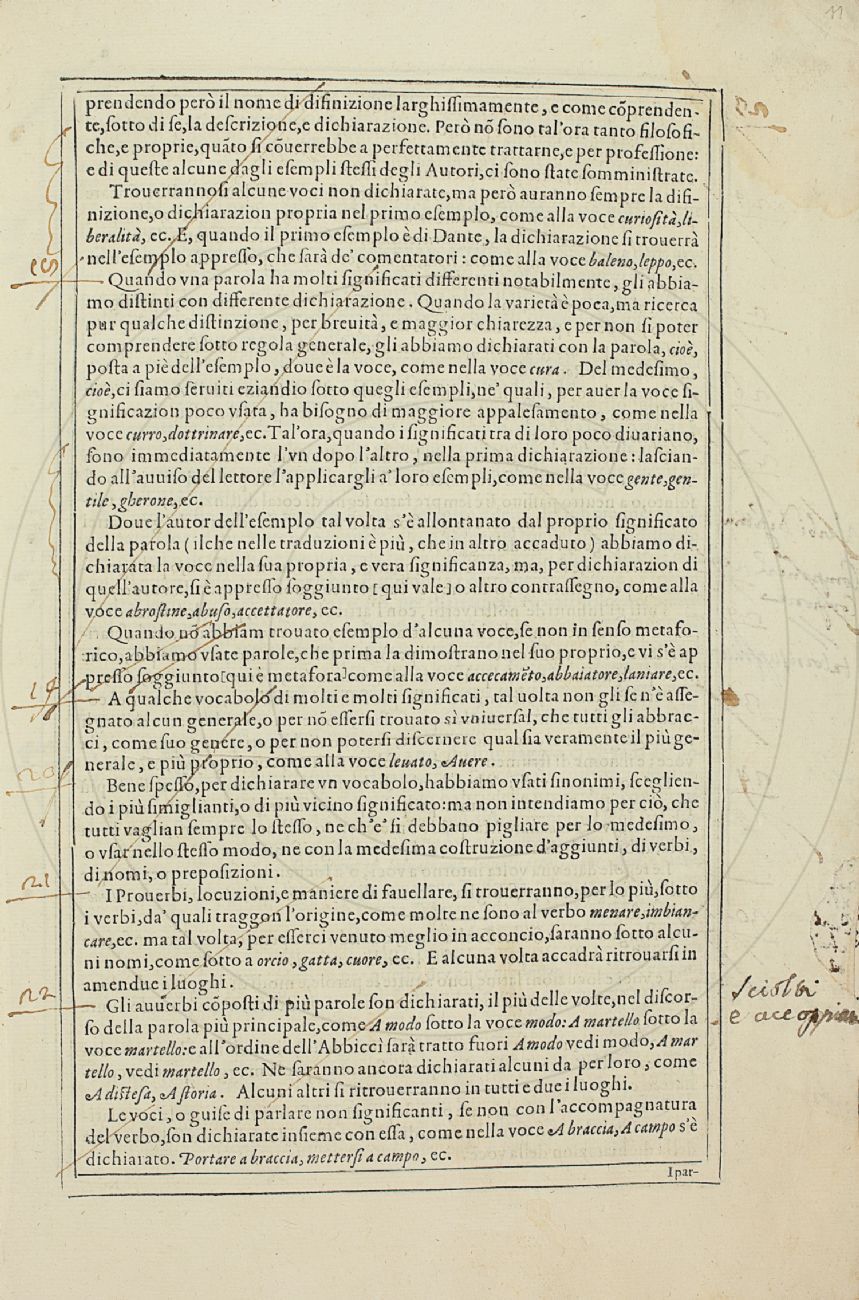 11
prendendo però il nome di difinizione larghiſſimamente, e come cõprenden-
te, ſotto di ſe, la deſcrizione, e dichiarazione. Però nõ ſono tal'ora tanto filoſofi-
che, e proprie, quãto ſi cõuerrebbe a perfettamente trattarne, e per profeſſione:
e di queſte alcune dagli eſempli ſteſſi degli Autori, ci ſono ſtate ſomminiſtrate.
Trouerrannoſi alcune voci non dichiarate, ma però auranno ſempre la difi-
nizione, o dichiarazion propria nel primo eſemplo, come alla voce curioſità, li-
beralità, ec. E, quando il primo eſemplo è di Dante, la dichiarazione ſi trouerrà
nell'eſemplo appreſſo, che ſarà de' comentatori: come alla voce baleno, leppo, ec.
Quando vna parola ha molti ſignificati differenti notabilmente, gli abbia-
mo diſtinti con differente dichiarazione. Quando la varietà è poca, ma ricerca
pur qualche diſtinzione, per breuità, e maggior chiarezza, e per non ſi poter
comprendere ſotto regola generale, gli abbiamo dichiarati con la parola, cioè,
poſta a piè dell'eſemplo, doue è la voce, come nella voce cura. Del medeſimo,
cioè, ci ſiamo ſeruiti eziandio ſotto quegli eſempli, ne' quali, per auer la voce ſi-
gnificazion poco vſata, ha biſogno di maggiore appaleſamento, come nella
voce curro, dottrinare, ec. Tal'ora, quando i ſignificati tra di loro poco diuariano,
ſono immediatamente l'vn dopo l'altro, nella prima dichiarazione: laſcian-
do all'auuiſo del lettore l'applicargli a' loro eſempli, come nella voce gente, gen-
tile, gherone, ec.
Doue l'autor dell'eſemplo tal volta s'è allontanato dal proprio ſignificato
della parola (ilche nelle traduzioni è più, che in altro accaduto) abbiamo di-
chiarata la voce nella ſua propria, e vera ſignificanza, ma, per dichiarazion di
quell'autore, ſi è appreſſo ſoggiunto [qui vale] o altro contraſſegno, come alla
voce abroſtine, abuſo, accettatore, ec.
Quando nõ abbiam trouato eſemplo d'alcuna voce, ſe non in ſenſo metafo-
rico, abbiamo vſate parole, che prima la dimoſtrano nel ſuo proprio, e vi s'è ap
preſſo ſoggiunto [qui è metafora] come alla voce accecamẽto, abbaiatore, laniare, ec.
A qualche vocabolo di molti e molti ſignificati, tal uolta non gli ſe n'è aſſe-
gnato alcun generale, o per nõ eſſerſi trouato sì vniuerſal, che tutti gli abbrac-
ci, come ſuo genere, o per non poterſi diſcernere qual ſia veramente il più ge-
nerale, e più proprio, come alla voce leuato, Auere.
Bene ſpeſſo, per dichiarare vn vocabolo, habbiamo vſati ſinonimi, ſceglien-
do i più ſimiglianti, o di più vicino ſignificato: ma non intendiamo per ciò, che
tutti vaglian ſempre lo ſteſſo, ne ch'e' ſi debbano pigliare per lo medeſimo,
o vſar nello ſteſſo modo, ne con la medeſima coſtruzione d'aggiunti, di verbi,
di nomi, o prepoſizioni.
I Prouerbi, locuzioni, e maniere di fauellare, ſi trouerranno, per lo più, ſotto
i verbi, da' quali traggon l'origine, come molte ne ſono al verbo menare, imbian-
care, ec. ma tal volta, per eſſerci venuto meglio in acconcio, ſaranno ſotto alcu-
ni nomi, come ſotto a orcio, gatta, cuore, ec. E alcuna volta accadrà ritrouarſi in
amendue i luoghi.
Gli auuerbi cõpoſti di più parole ſon dichiarati, il più delle volte, nel diſcor-
ſo della parola più principale, come A modo ſotto la voce modo: A martello ſotto la
voce martello: e all'ordine dell'Abbiccì ſarà tratto fuori A modo vedi modo, A mar
tello, vedi martello, ec. Ne ſaranno ancora dichiarati alcuni da per loro, come
A diſteſa, A ſtoria. Alcuni altri ſi ritrouerranno in tutti e due i luoghi.
Le voci, o guiſe di parlare non ſignificanti, ſe non con l'accompagnatura
del verbo, ſon dichiarate inſieme con eſſa, come nella voce A braccia, A campo s'è
dichiarato. Portare a braccia, metterſi a campo, ec.
I par-
19
20
21
22